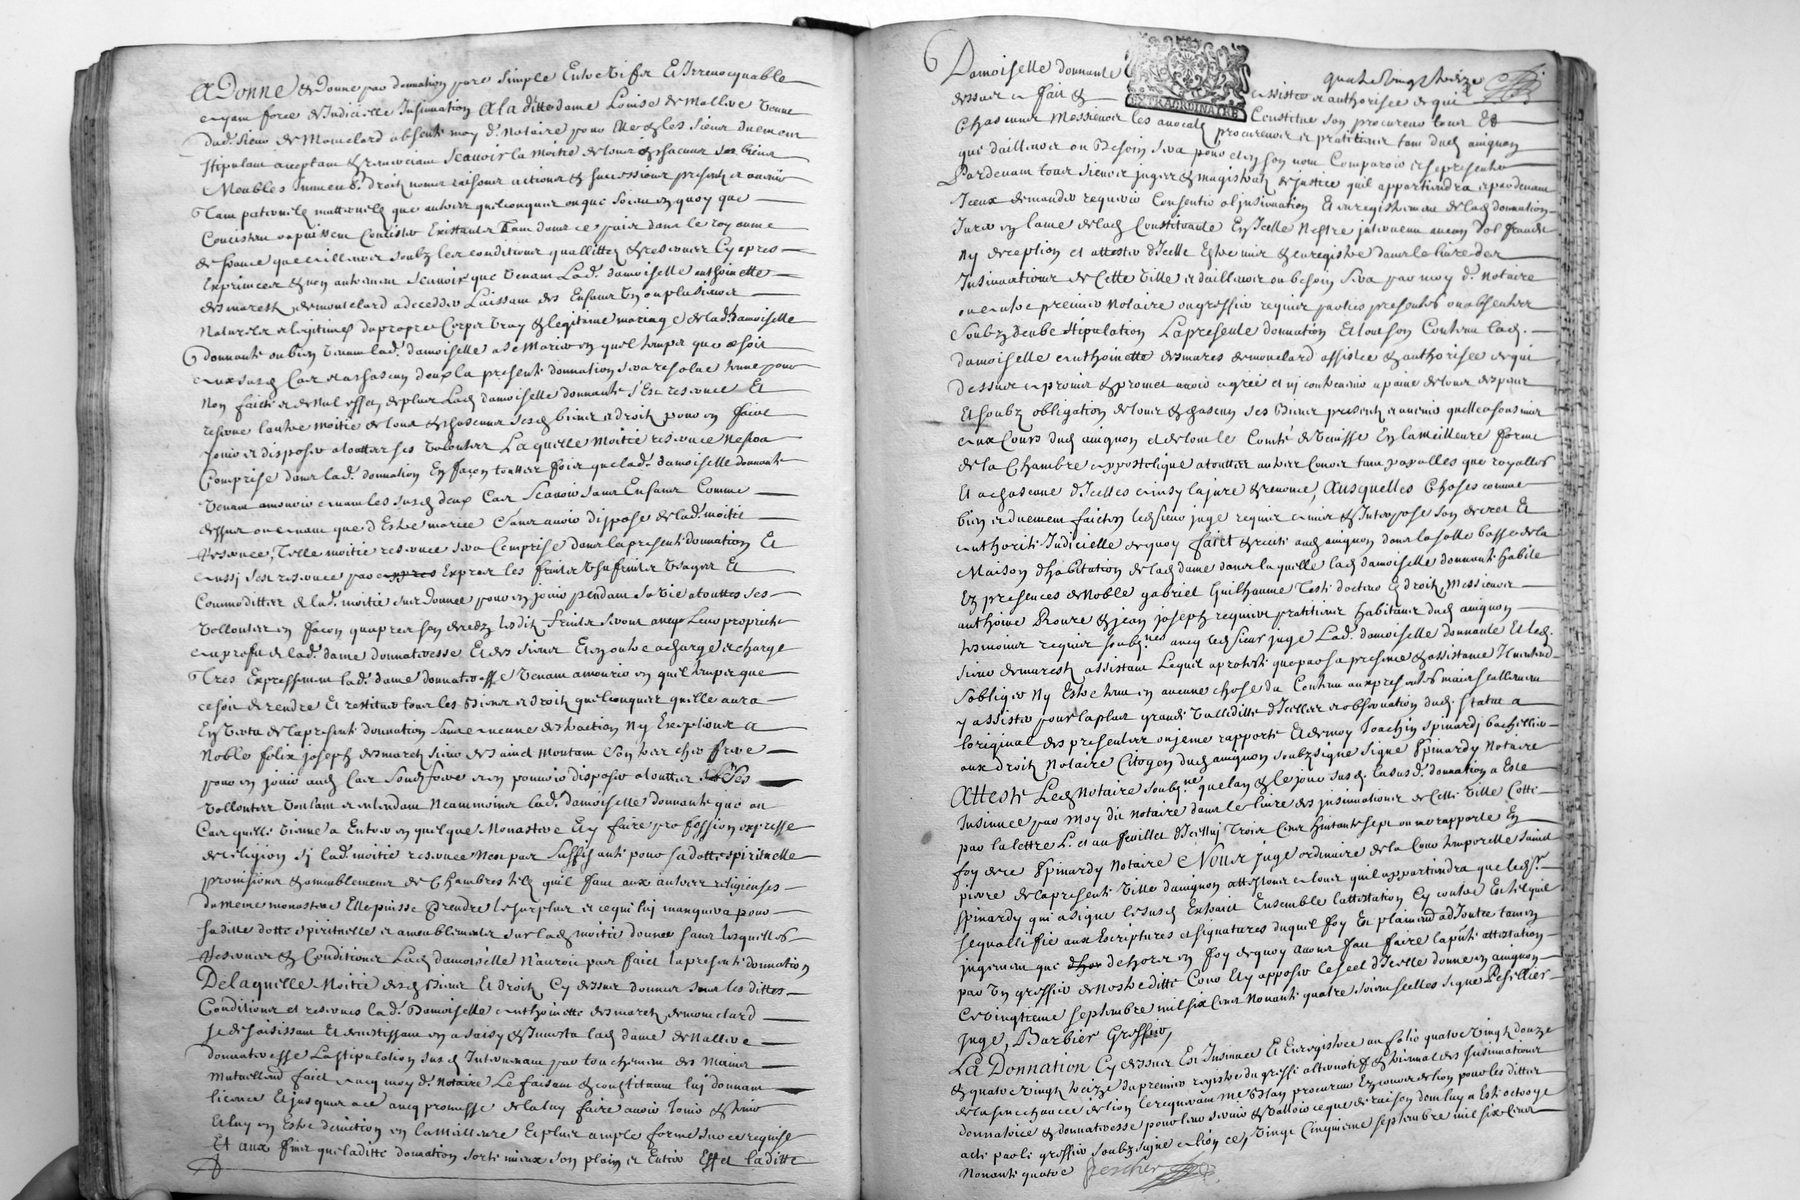 A Donne & Donne par donnation pure simple Entre Vifs Et Irrevocquable
ayant force d'Judicielle Insinuation A la ditte dame Louise de Mallive Venue
dud. sieur de Monclard absente moy d. Notaire pour Elle & les sieurs duement
stipulant acceptant & remerciant scauoir la moitie de tous & chacuns ses biens
Meubles Immeub. droits noms raisons actions & successions presents et auenir
Tant paternels matternels que autres quelconques ou que soient en quoy que
Concistent ou puissent Concister Existants Tant dans ce pais dans le royaume
de france que ailleurs soubz les conditions quallittes & reserues Cy apres
Exprimees & non autrement scauoir que Venant Lad. damoiselle anthoinette
desmarests demonclard a decedder Laissant des Enfants Vn ou plusieurs
Naturels et legitimes du propre Corps Vray & legitime mariage de lad. Damoiselle
donnante ou bien Venant lad. damoiselle a se Marier en quel temps que ce soit
aux susd. Cas et a chascun deux la presente donnation sera resolue tenue pour
Non faicte et de Nul effet, de plus Lad. damoiselle donnante s'Est reserué Et
reserue l'autre moitie de tous & chascuns sesd. biens et droits pour en faire
Jouir et disposer a touttes ses Vollontes Laquelle Moitie reseruee Nesera
Comprise dans lad. donnation En façon touttes fois que lad. damoiselle donnante
Venant a mourir auant les susd. deux Cas Scauoir sans Enfants Comme
dessus ou auant que d'Estre mariee Sans auoir dispose de lad. moitie
Reseruee, Telle moitie reseruee sera Comprise dans la presente donnation Et
aussi sest reseruee par expres Expres les fruits Vsufruits Vsages Et
Commodittes de lad. moitie sus donnee pour en jouir pendant sa Vie a touttes ses
Vollontes en façon quapres son deceds lesdits fruits seront auec Leur propriete
au profit de lad. dame donnateresse Et des siens Et en outre a charge et charge
Tres Expressement lad. dame donnateresse Venant a mourir en quel temps que
ce soit de rendre Et restituer tous les Biens et droits quelconques quelle aura
En Vertu de la presente donnation sans aucune destraction Ny Exceptions A
Noble felix joseph desmarests sieur de Saint Montant son tres cher frere
pour en jouir aud. Cas Sond. frere et en pouuoir disposer a touttes ses
Vollontes Voulant et entendant Neammoins lad. damoiselle donnante que au
Cas quelle Vienne a Entrer en quelque Monastere Et y faire proffession expresse
de religion si lad. moitie reseruee Nest pas suffisante pour sa dotte spirituelle
prouisions & ameublements de Chambres tels quil faut aux autres religieuses
du meme monastere Elle puisse Prendre le surplus et ce qui luy manquera pour
sa ditte dotte spirituelle et ameublements sur lad. moitie donnee sans lesquelles
Reserues & Conditions Lad. damoiselle N'auroit pas faict la presente donnation
De laquelle Moitie desd. Biens Et droits Cy dessus donnes sous les dittes
Conditions et reserues lad. Damoiselle anthoinette des marets demonclard
se desaisissant Et deuestissant en a saisy & Inuesty lad. dame de Mallive
donnateresse La stipulation susd. Interuenant par touchement des Mains
Mutuellement faict auecq moy d. Notaire Le faisant & constituant luy donnant
licence Et jusques a ce auecq promesse de la luy faire auoir Jouir & tenir
Et luy en Estre deuiction en la Meilleure Et plus ample forme sur ce requise
Et aux fins que laditte donnation sorte mieux son plain et Entier Effet laditte
quatre Vingt treize
EXTRAORDINAIRE
Damoiselle donnante
dessus a fait & assistee et authorisee de qui
Constitue son procureur tous Et
Chascuns Messieurs les auocats procureurs et pratitiens tant dud. auignon
que dailleurs ou Besoin sera pour et en son nom Comparoir et se presenter
Pardeuant tous sieurs juges & magistrats de justice quil appartiendra et pardeuant
Iceux demander requerir Consentir a l'insinuation Et enregistrement de lad. donnation
Jurer en lame de lad. Constituante En Icelle Nestre jnteruenu aucun dol fraude
Ny deception et attester d'Icelle Estre mise & enregistre dans le liure des
Insinuations de Cette Ville et dailleurs ou besoin sera par moy d. Notaire
ou autre premier Notaire ou greffier requis parties presentes ou absentes
Soubz deube stipulation La presente donnation Et tout son Contenu lad.
damoiselle anthoinette desmares demonclard assistee & authorisee de qui
dessus a promis & promet auoir agree et ny contreuenir a paine de tous despens
Et soubz obligation de tous & chascun ses Biens presents et auenir quelle a soumis
aux Cours dud. auignon et de tout le Comté de Venisse En la meilleure forme
de la Chambre appostolique a touttes autres Cours tant papalles que royalles
Et a chascune d'Icelles ainsy la juré & renonce, Ausquelles Choses comme
bien et duement faictes ledsieur juge requis a mis & Interpose son decret Et
authorité Judicielle de quoy faict & recité aud. auignon dans la salle basse de la
Maison d'habitation de lad. dame dans laquelle lad. damoiselle donnante habite
En presences de Noble gabriel Guilhaume Testi docteur es droits Messieurs
anthoine Roure & jean joseph requien pratitiens habitans dud. auignon
tesmoins requis soubz.nes auec led sieur juge Lad. damoiselle donnante Et led.
sieur demarests assistant Lequel a proteste que par sa presence & assistance N'entend
sobliger Ny Estre tenu en aucune chose du Contenu aux presentes mais seullement
y assister pour la plus grande Validitte d'Icelles et obseruation dud. statut a
loriginal des presentes on je me rapporte Et de moy Joachin spinardy bachellier
aux droits Notaire Citoyen dud. auignon soubzsigne signe Spinardy Notaire
Atteste Led. Notaire soub.ne que lan & le jour susd. La susd. donnation a Este
Insinuee par moy dit Notaire dans le liure des jnsinuations de Cette Ville Cotté
par la lettre L. et au feuillet d'Icelluy Trois Cens huitante sept ou me rapporte En
foy de ce Spinardy Notaire Nous juge ordinaire de la Cour temporelle saint
pierre de la presente Ville d'auignon attestons a tous quil appartiendra que led. Sr
Spinardy qui a signe le susd. Extrait Ensemble l'attestation Cy contre Est tel quil
se quallifie aux Escriptures et signatures duquel foy Et plain adjoutee tant en
jugement que dhor dehors en foy dequoy auons fait faire la pnte attestation
par Vn greffier de Nostreditte Cour Et y apposer le scel d'Icelle donne en auignon
Ce Vingtieme septembre mil six Cens Nonante quatre soient scelles signe Pezillier
juge, Barbier Greffier,
LA Donnation Cy dessus Est Insinuee Et Enregistree au folio quatre Vingt douzze
& quatre Vingts treize du premier registre du greffe alternatif & triennal des Insinuations
de la senechaucee de lion le requerant Me Blan procureur Ez cours de lion pour les dittes
donnatrice & donnateresse pour leur seruir & Valloir ce que de raison dont luy a Este octroye
acte par le greffier soubz signe a lion ce, Vingt Cinquieme septembre mil six Cens
Nonante quatre